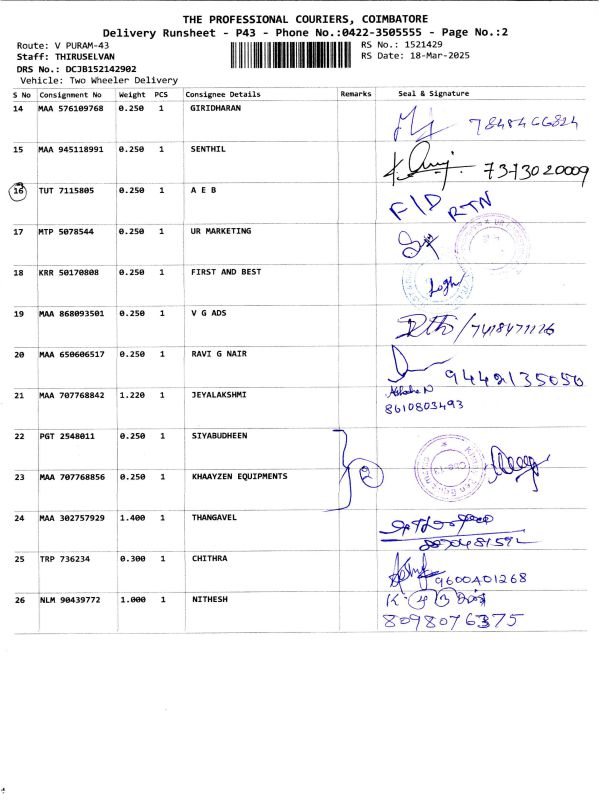 THE PROFESSIONAL COURIERS, COIMBATORE
Delivery Runsheet - P43 - Phone No.:0422-3505555 - Page No.:2
Route: V PURAM-43 RS No.: 1521429
Staff: THIRUSELVAN RS Date: 18-Mar-2025
DRS No.: DCJB152142902
Vehicle: Two Wheeler Delivery
S No Consignment No Weight PCS Consignee Details Remarks Seal & Signature
14 MAA 576109768 0.250 1 GIRIDHARAN
15 MAA 945118991 0.250 1 SENTHIL 7373020009
16 TUT 7115805 0.250 1 A E B F/D RTN
17 MTP 5078544 0.250 1 UR MARKETING
18 KRR 50170808 0.250 1 FIRST AND BEST
19 MAA 868093501 0.250 1 V G ADS
20 MAA 650606517 0.250 1 RAVI G NAIR 9442135050
21 MAA 707768842 1.220 1 JEYALAKSHMI
8610803493
22 PGT 2548011 0.250 1 SIYABUDHEEN
2
23 MAA 707768856 0.250 1 KHAAYZEN EQUIPMENTS
24 MAA 302757929 1.400 1 THANGAVEL
25 TRP 736234 0.300 1 CHITHRA 9600401268
26 NLM 90439772 1.000 1 NITHESH
8098076375